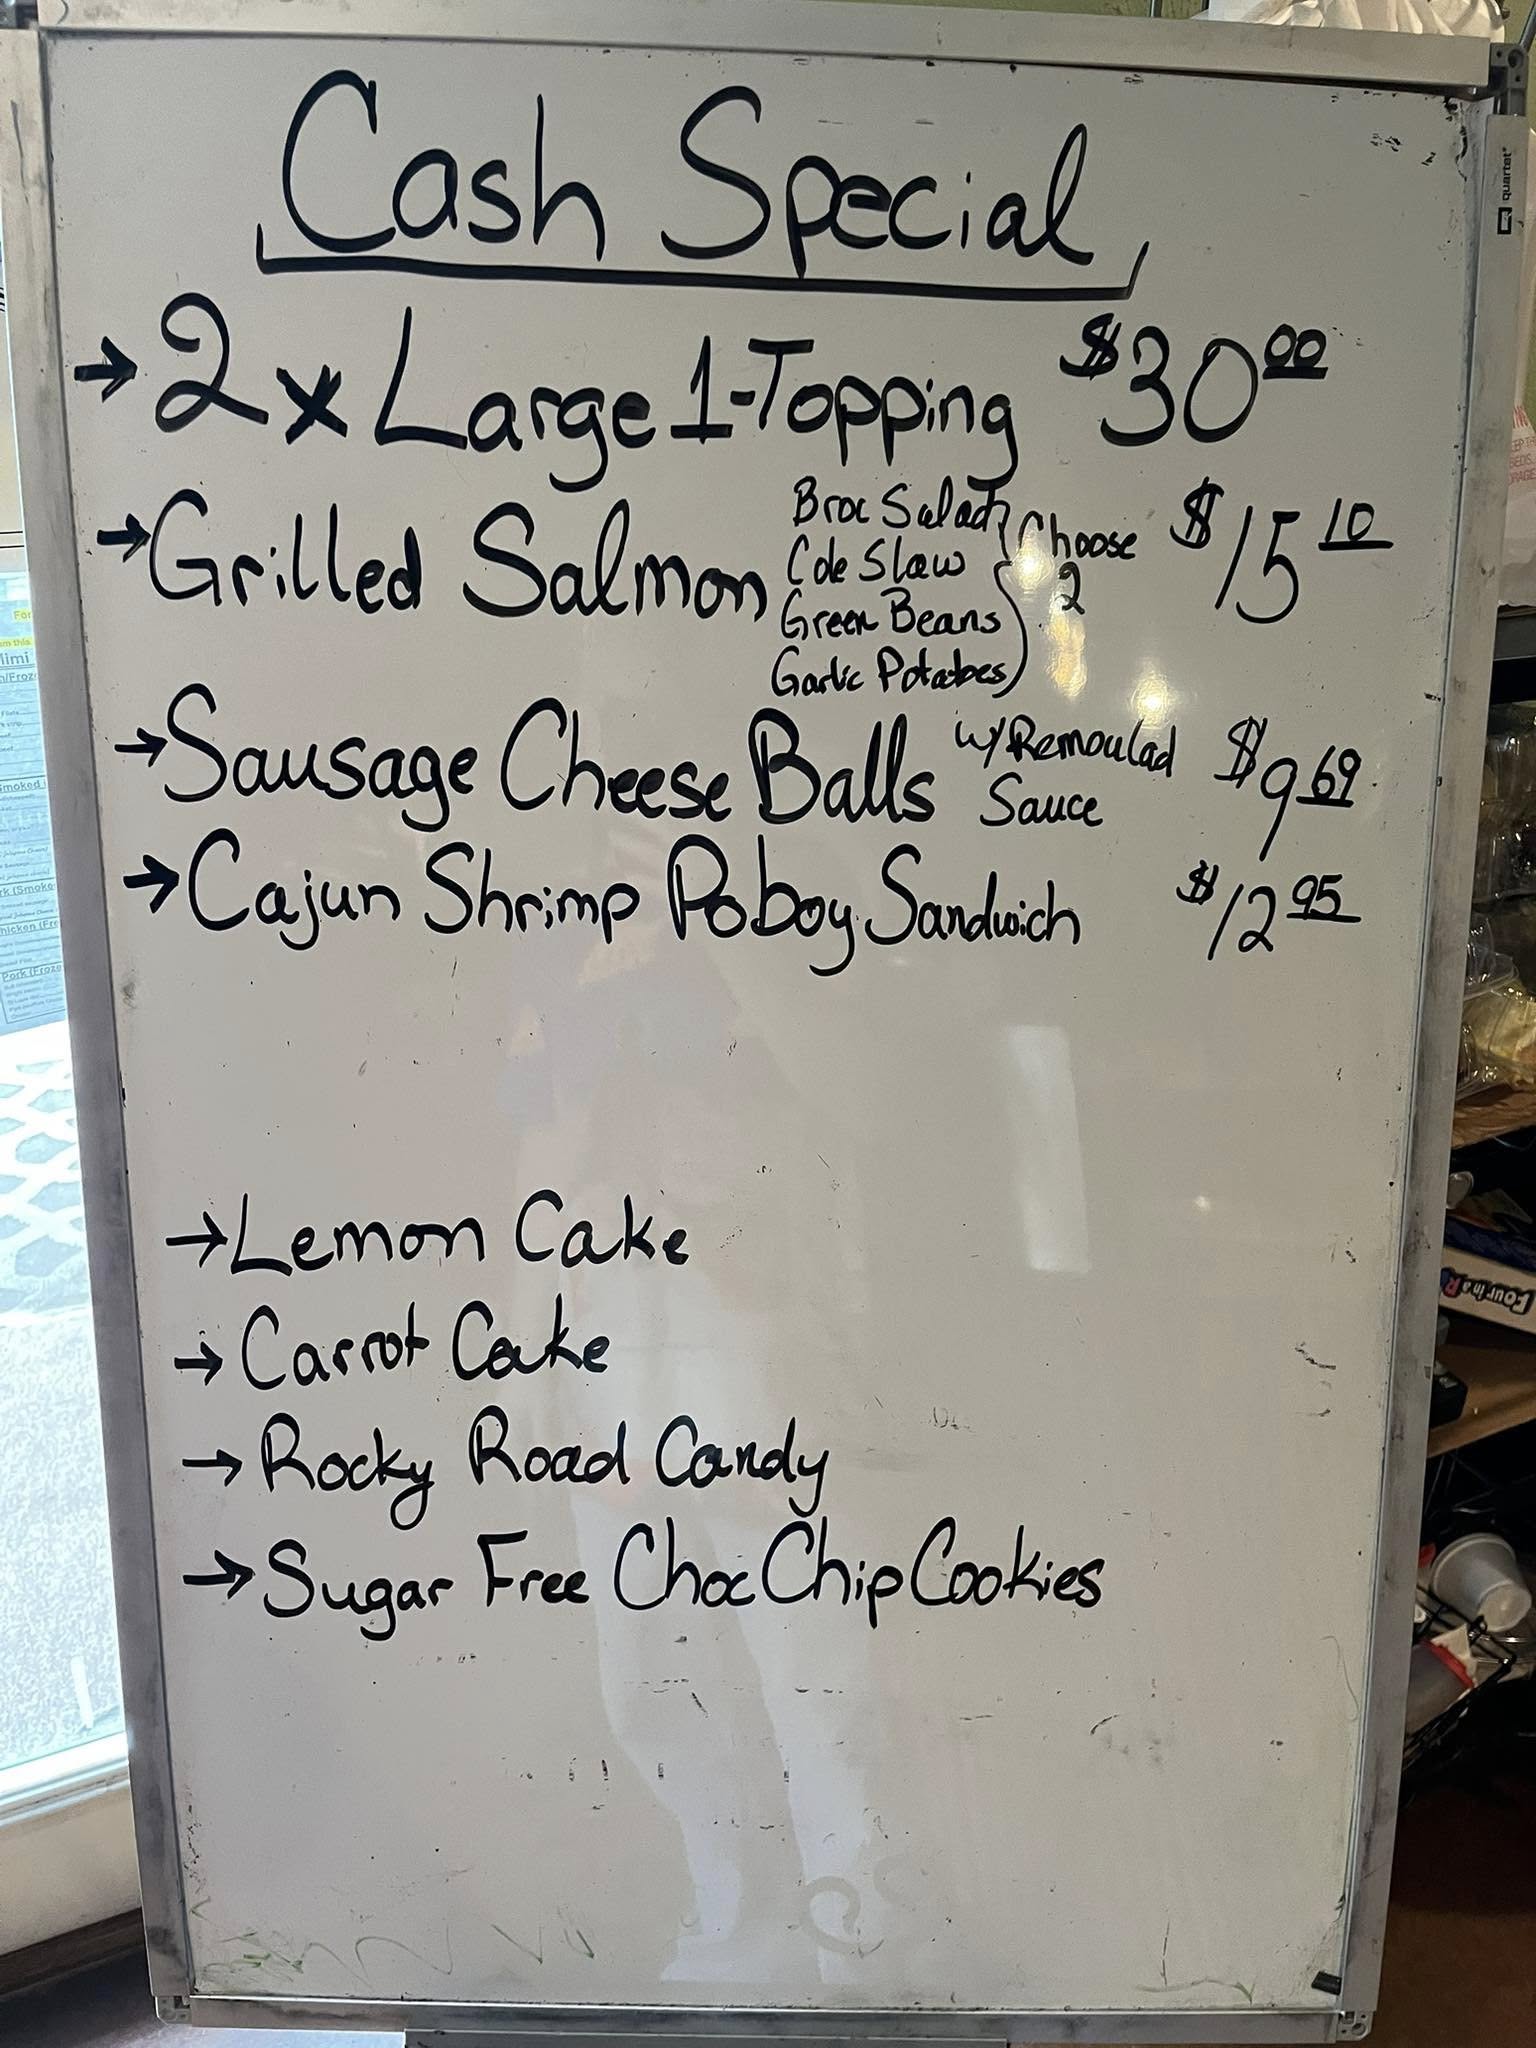 Cash Special
→ 2 x Large 1-Topping $30.00
→ Grilled Salmon $15.10
Broc Salad
Cole Slaw
Green Beans
Garlic Potatoes
Choose
2
→ Sausage Cheese Balls w/ Remoulad $9.69
Sauce
→ Cajun Shrimp Poboy Sandwich $12.95
→ Lemon Cake
→ Carrot Cake
→ Rocky Road Candy
→ Sugar Free Choc Chip Cookies
quartet
Four in a R